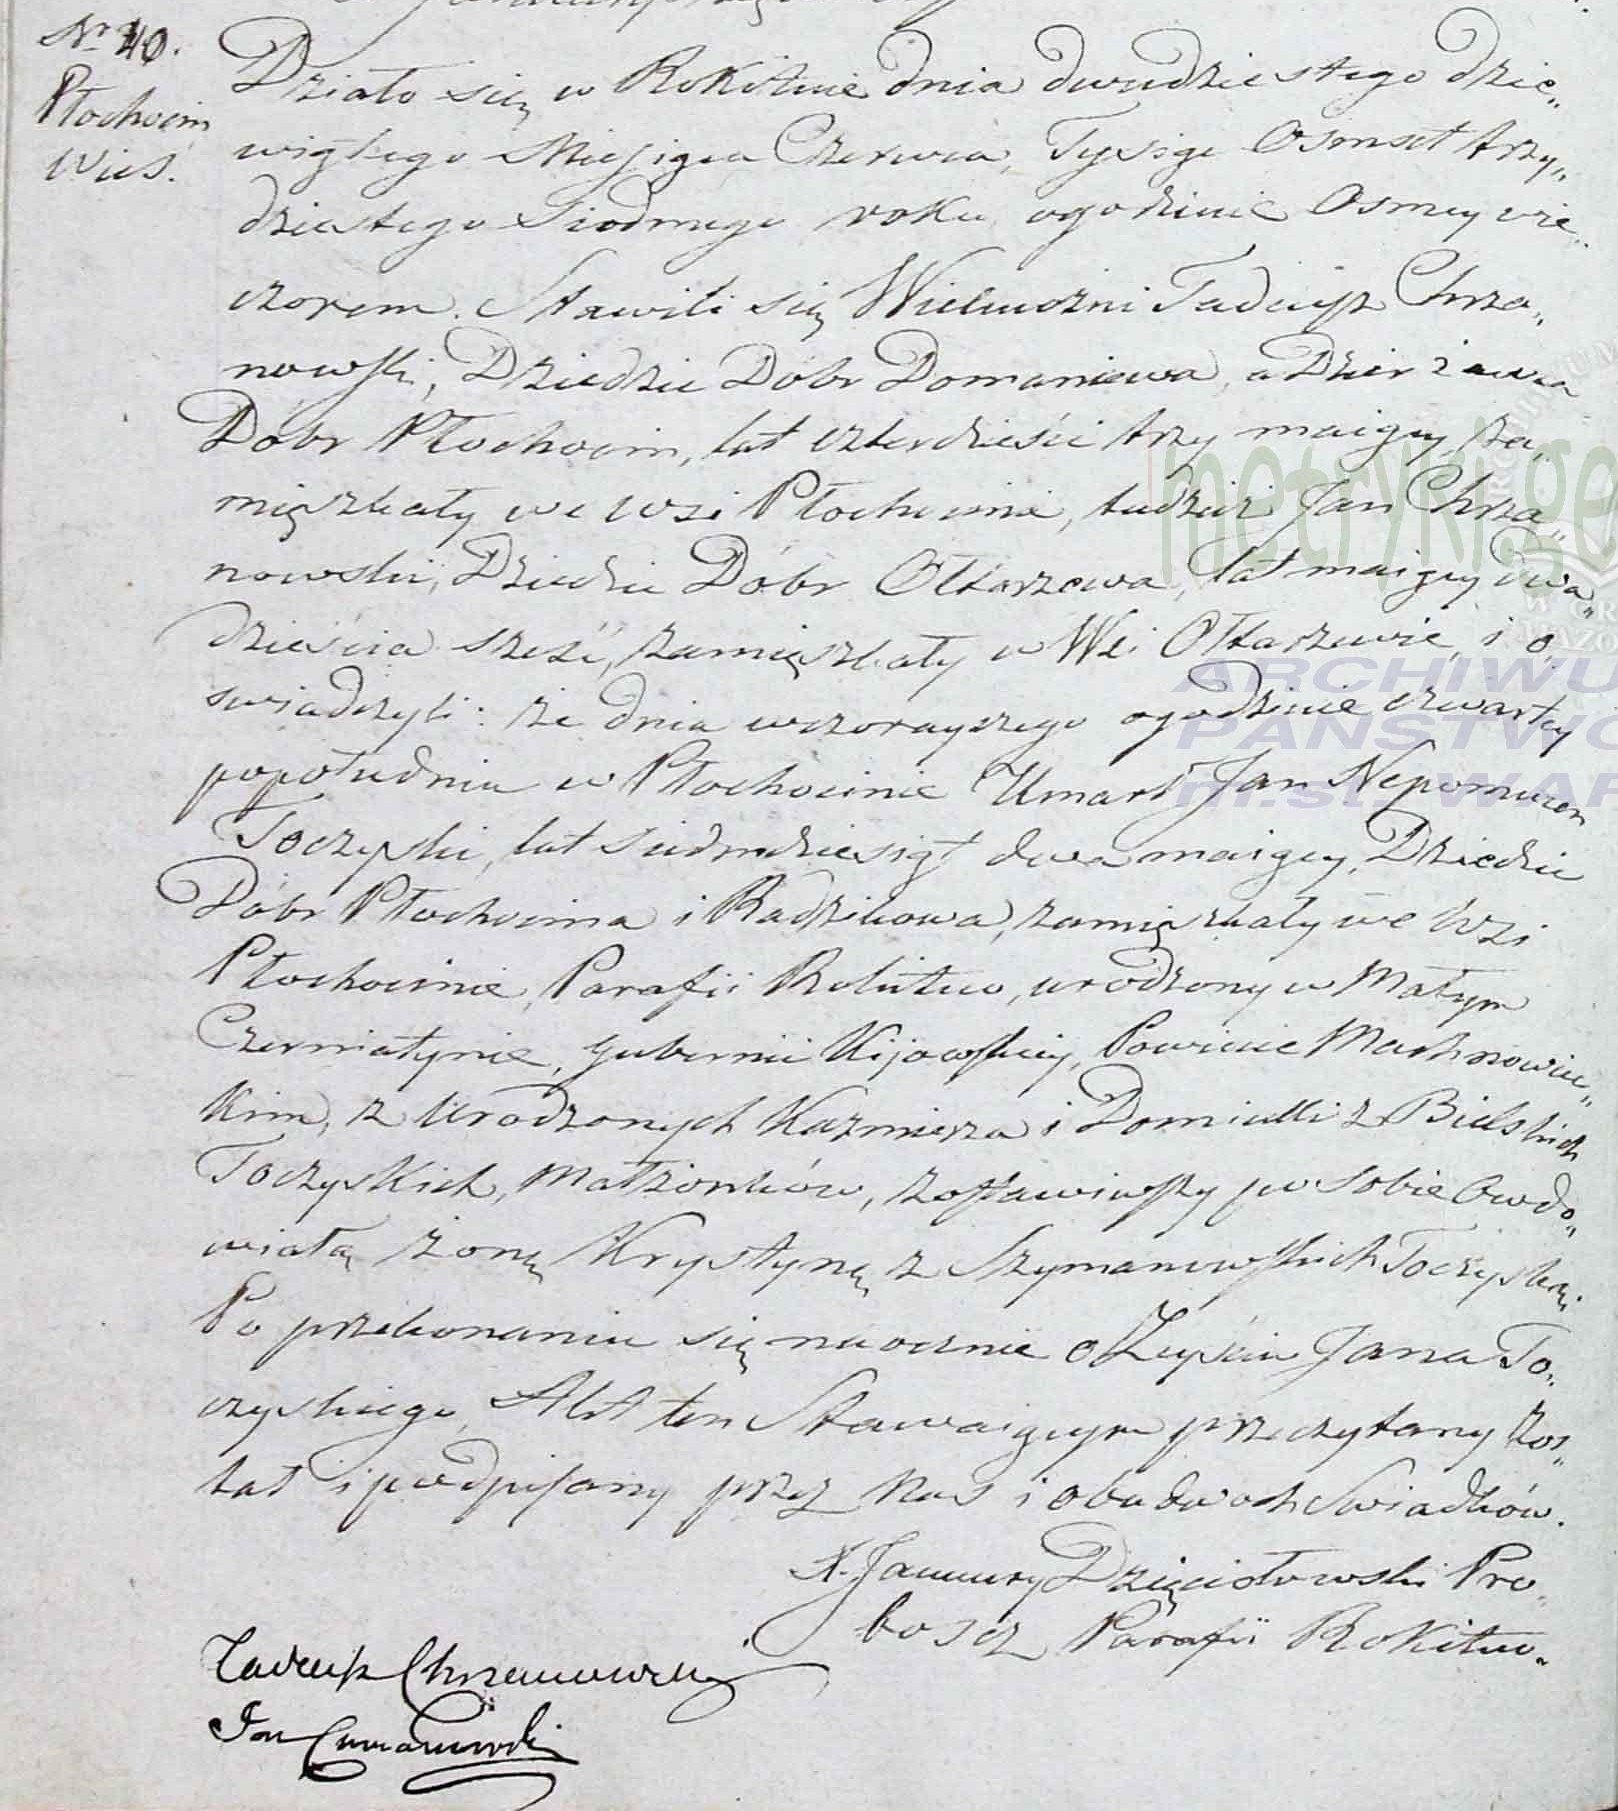 Nr 40.
Płochocin
Wieś.
Działo się w Rokitnie dnia dwudziestego dzie„
wiątego Miesiąca Czerwca, Tysiąc Osmset trzy„
dziestego Siodmego roku ogodzinie Osmey wie„
czorem. Stawili się Wielmożni Tadeusz Chrza„
nowski, Dziedzic Dóbr Domaniewa, a Dzierżawca
Dóbr Płochocin, lat czterdzieści trzy maiący, za„
mięszkały we wsi Płochocinie, tudzież Jan Chrza„
nowski, Dziedzic Dóbr Ołtarzewa, lat maiący dwa„
dzieścia sześć, zamięszkały w Wsi Ołtarzewie, i o„
swiadczyli: że dnia wczorayszego ogodzinie czwartey
popołudniu w Płochocinie Umarł Jan Nepomucen
Toczyski, lat siedmdziesiąt dwa maiący, Dziedzic
Dóbr Płochocina i Radzikowa, zamięszkały we wsi
Płochocinie, Parafii Rokitno, urodzony w Małym
Czerniatynie, Gubernii Kijowskiey, Powiecie Machnowiec„
kim, z Urodzonych Kazmierza i Domicelli z Bielskich
Toczyskich, Małżonków, zostawiwszy po sobie Owdo„
wiałą żonę Krystynę z Szymanowskich Toczyską.
Po przekonaniu się naocznie o Zeyściu Jana To„
czyskiego, Akt ten Stawaiącym przeczytany zos„
tał i podpisany przez Nas i obudwoch Swiadków.
X. January Dzięciołowski Pro„
boscz Parafii Rokitno.
Tadeusz Chrzanowski
Jan Chrzanowski
metryki.ge
ARCHIWU
PAŃSTWO
m.st. WAR